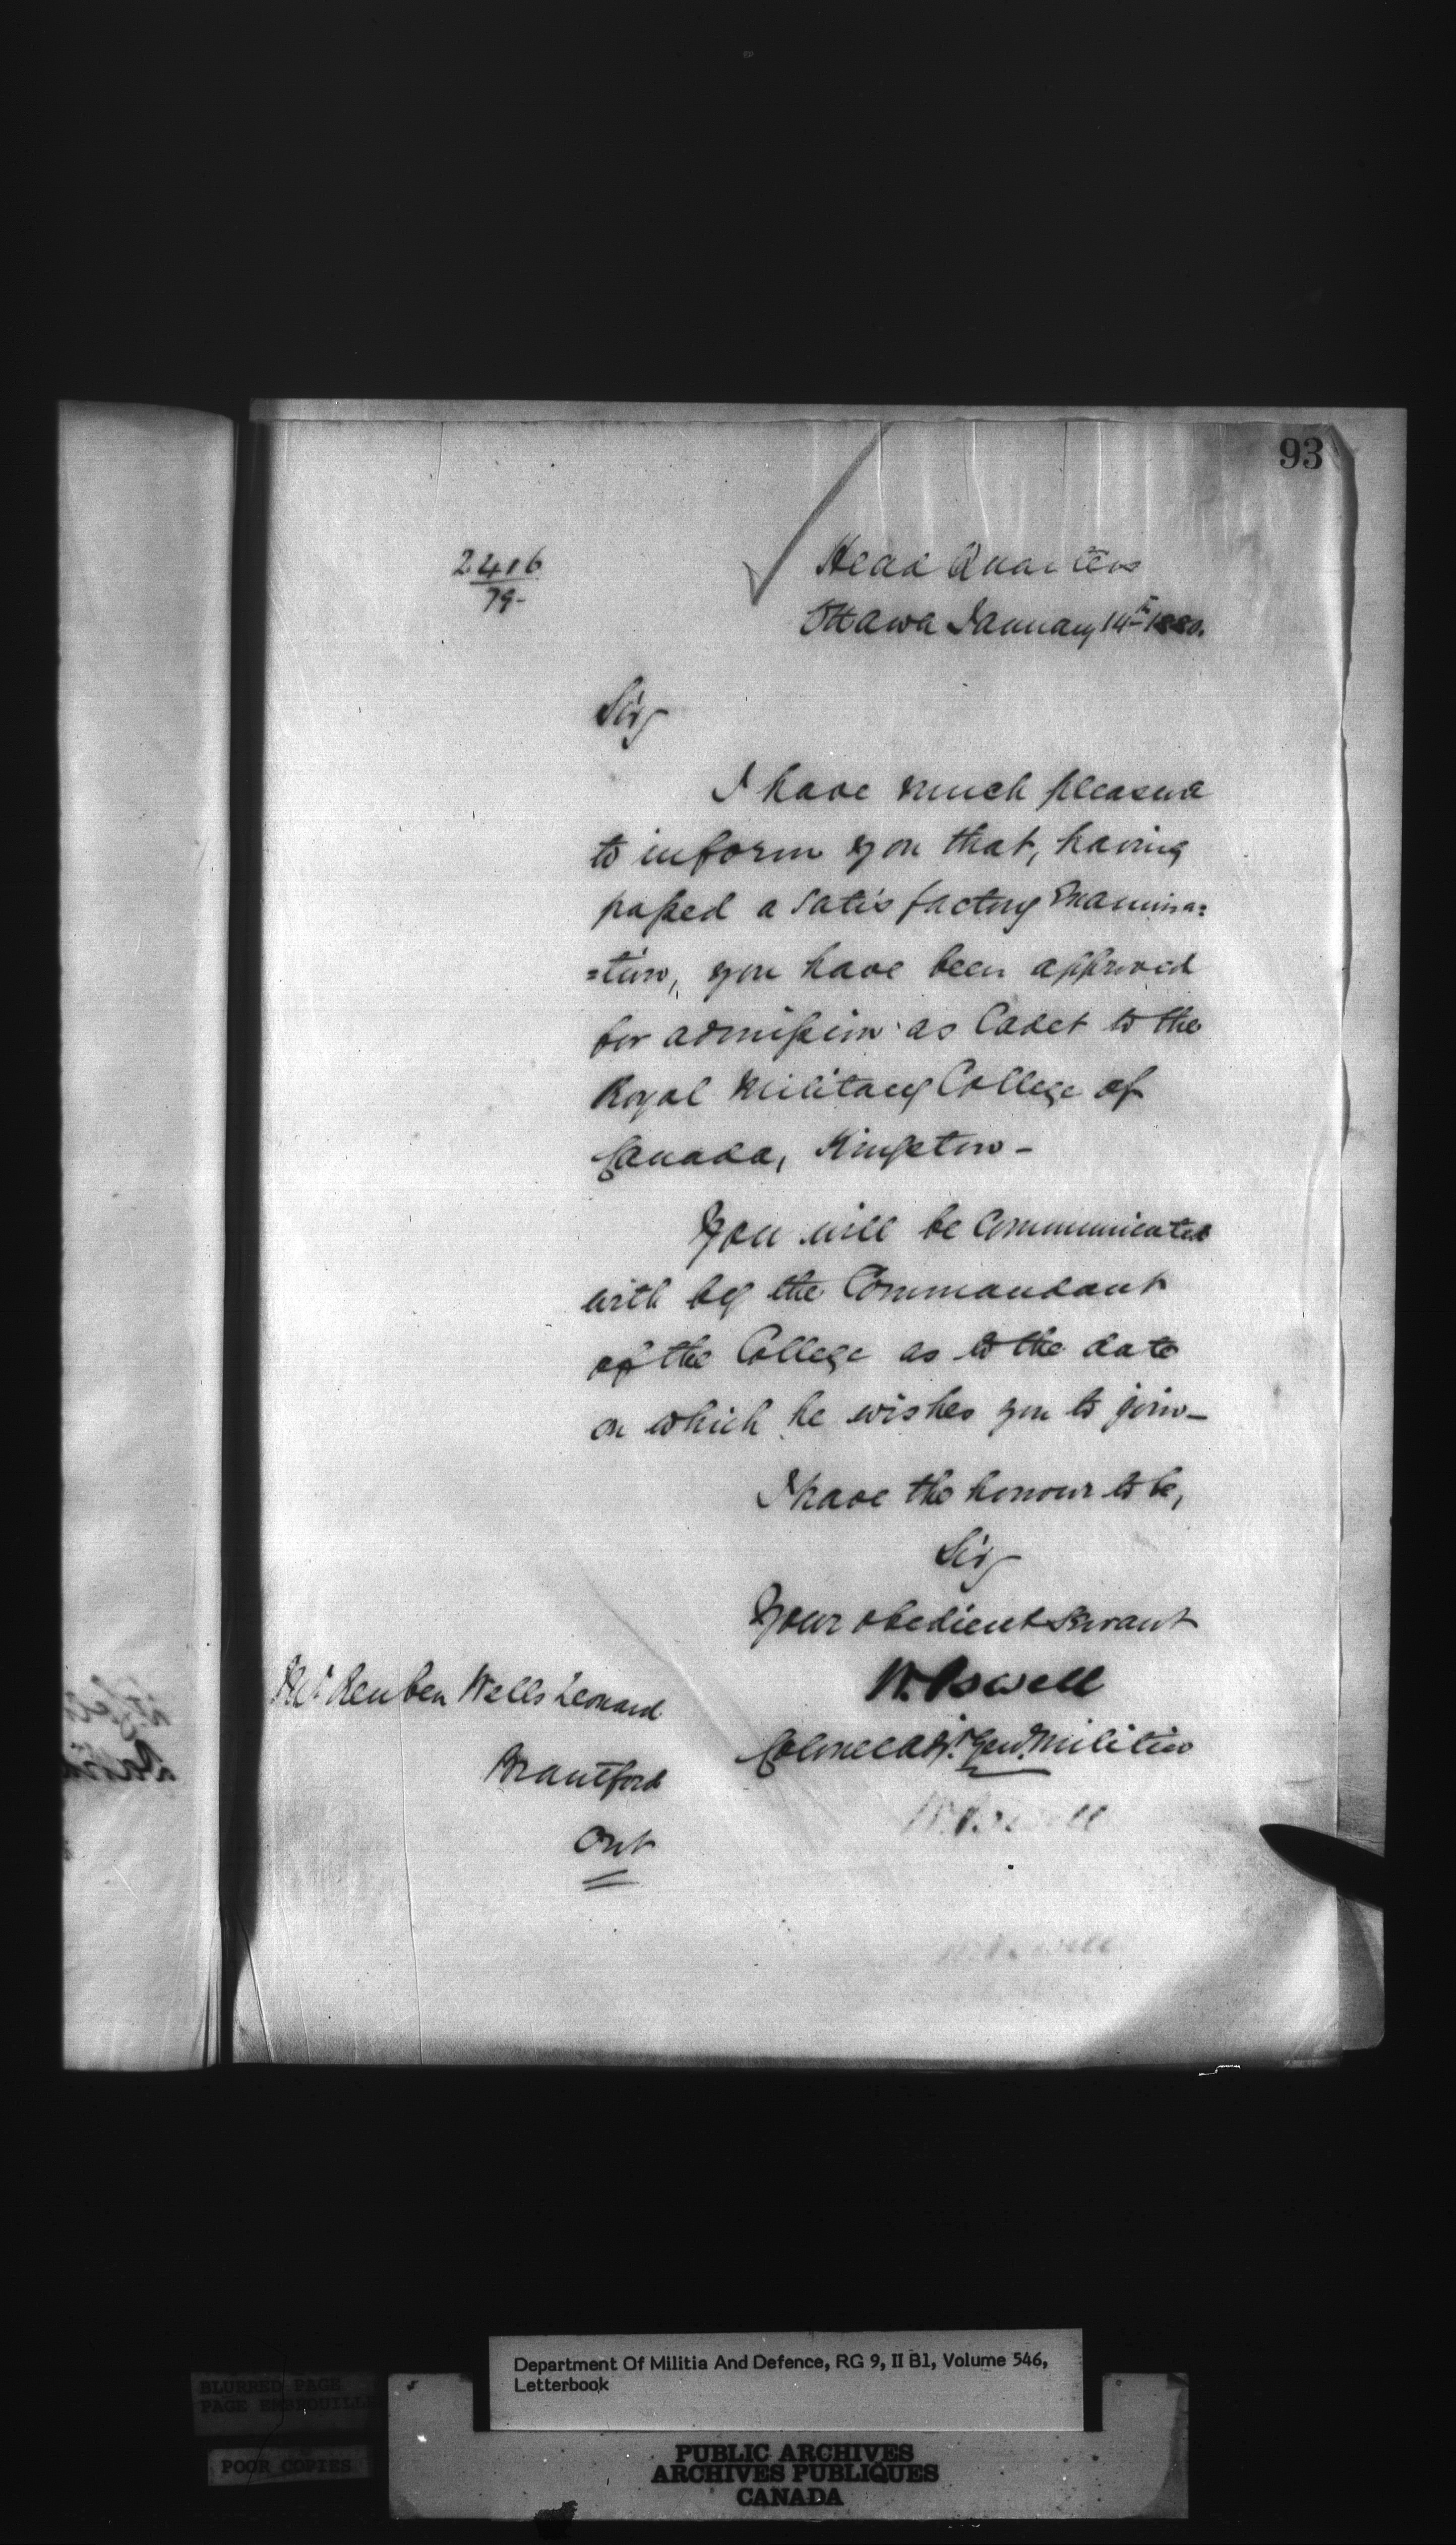 93
2416
79-
Head Quarters
Ottawa January 14th 1880.
Sir,
I have much pleasure
to inform you that, having
passed a satisfactory Examina=
=tion, you have been approved
for admission as Cadet to the
Royal Military College of
Canada, Kingston -
You will be communicated
with by the Commandant
of the College as to the date
on which he wishes you to join -
I have the honour to be,
Sir,
Your obedient Servant
W. Powell
Colonel Adjt. Genl. Militia
W. Powell
Mr. Reuben Wells Leonard
Brantford
Ont
W. Powell
Department Of Militia And Defence, RG 9, II B1, Volume 546,
Letterbook
BLURRED PAGE
PAGE EMBROUILL
POOR COPIES
PUBLIC ARCHIVES
ARCHIVES PUBLIQUES
CANADA